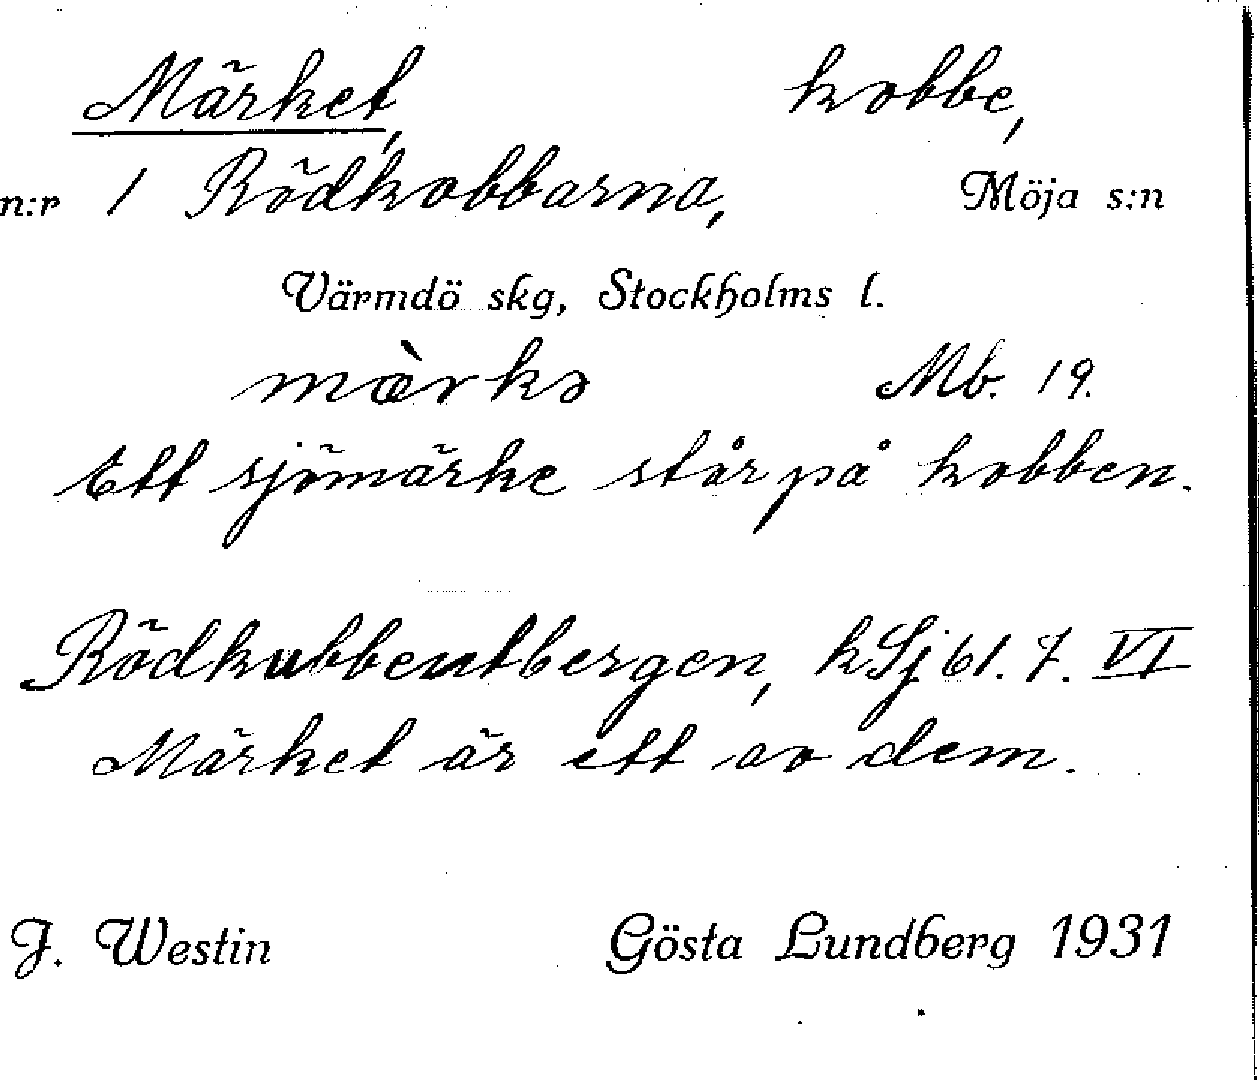 Märket, kobbe,
n:r 1 Rödkobbarna, Möja s:n
Värmdö skg, Stockholms l.
mæ̀rkə Mb. 19.
Ett sjömärke står på kobben.
Rödkubbeutbergen, hSj 61. 7. VI
Märket är ett av dem.
J. Westin Gösta Lundberg 1931